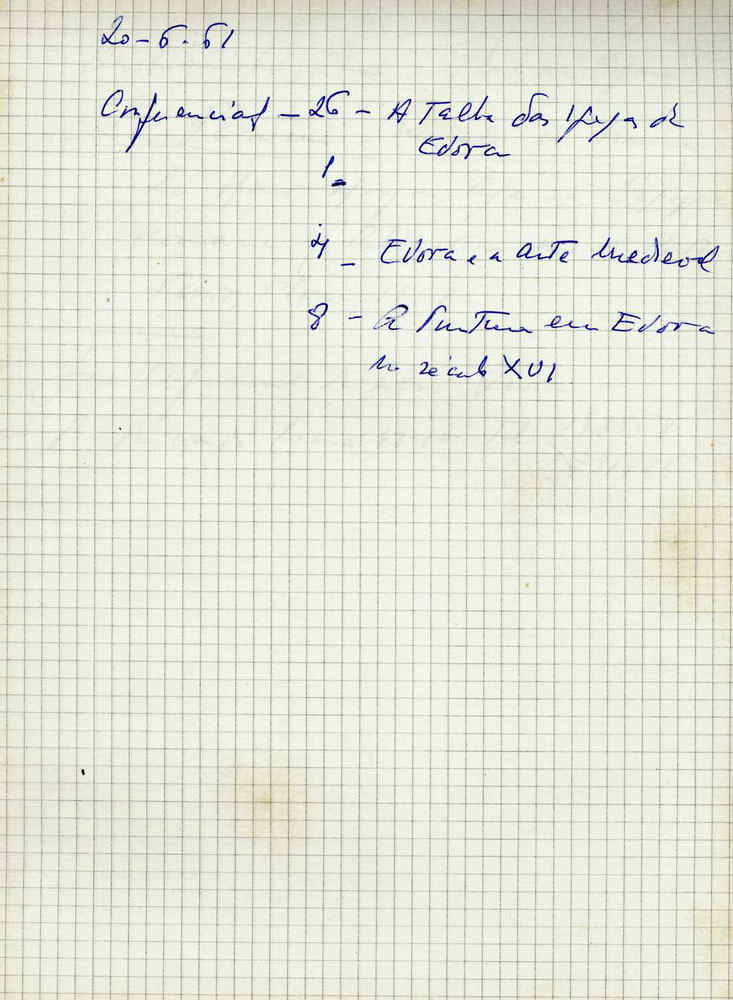 20-6.61
Conferencias - 26 - A Talha das Igrejas de
Evora
1 -
4 - Evora e a arte medieval
8 - A Pintura em Evora
no século XVI